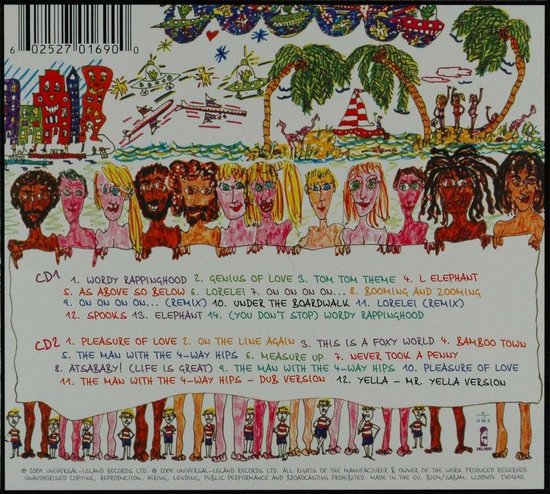 6 02527 01690 0
CD1 1. WORDY RAPPINGHOOD 2. GENIUS OF LOVE 3. TOM TOM THEME 4. L ELEPHANT
5. AS ABOVE SO BELOW 6. LORELEI 7. ON ON ON ON... 8. BOOMING AND ZOOMING
9. ON ON ON ON... (REMIX) 10. UNDER THE BOARDWALK 11. LORELEI (REMIX)
12. SPOOKS 13. ELEPHANT 14. (YOU DON'T STOP) WORDY RAPPINGHOOD
CD2 1. PLEASURE OF LOVE 2. ON THE LINE AGAIN 3. THIS IS A FOXY WORLD 4. BAMBOO TOWN
5. THE MAN WITH THE 4-WAY HIPS 6. MEASURE UP 7. NEVER TOOK A PENNY
8. ATSABABY! (LIFE IS GREAT) 9. THE MAN WITH THE 4-WAY HIPS 10. PLEASURE OF LOVE
11. THE MAN WITH THE 4-WAY HIPS - DUB VERSION 12. YELLA - MR. YELLA VERSION
UMC ISLAND
℗ 2009 UNIVERSAL-ISLAND RECORDS LTD. © 2009 UNIVERSAL-ISLAND RECORDS LTD. ALL RIGHTS OF THE MANUFACTURER & OWNER OF THE WORK PRODUCED RESERVED.
UNAUTHORISED COPYING, REPRODUCTION, HIRING, LENDING, PUBLIC PERFORMANCE AND BROADCASTING PROHIBITED. MADE IN THE EU. BIEM/SABAM. LC00407. 2701690.